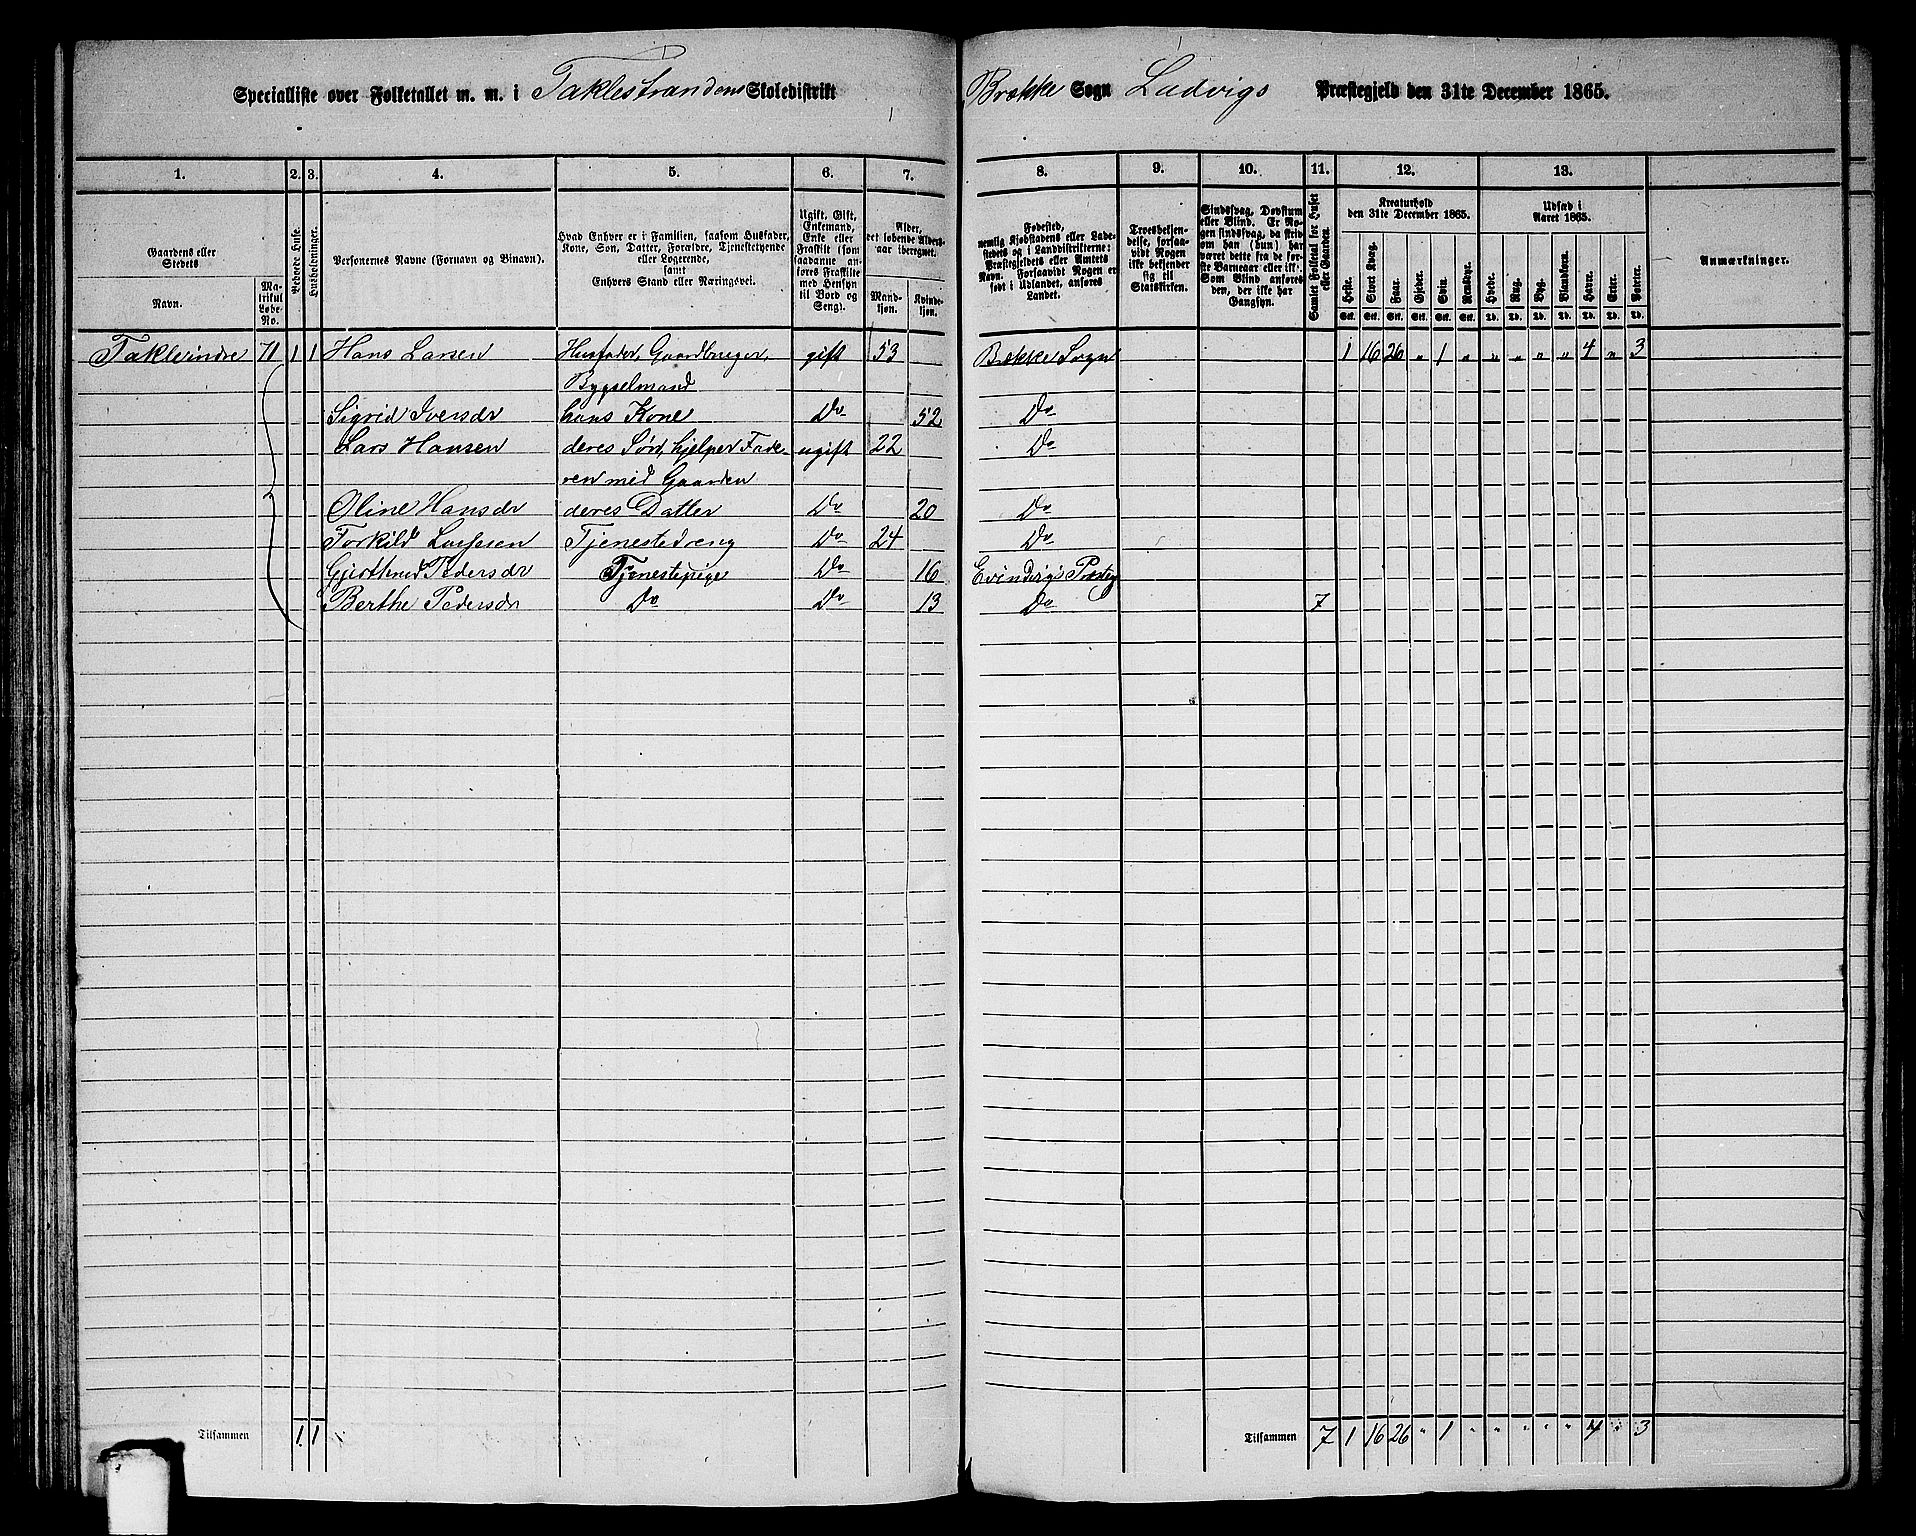 Specialliste over Folketallet m. m. i Taklestrandens Skoledistrikt Brække Sogn Ladvigs Præstegjeld den 31te December 1865.
1. 2. 3. 4. 5. 6. 7. 8. 9. 10. 11. 12. 13.
Gaardens eller Stedets
Navn.
Matrikul Løbe-No.
Beboede Huse.
Husholdninger.
Personernes Navne (Fornavn og Binavn).
Hvad Enhver er i Familien, saasom Husfader, Kone, Søn, Datter, Forældre, Tjenestetyende eller Logerende, samt Enhvers Stand eller Næringsvei.
Ugift, Gift, Enkemand, Enke eller Fraskilt (som saadanne anføres Fraskilte med Hensyn til Bord og Seng).
Alder, det løbende Alders-aar iberegnet.
Mandkjøn.
Kvindekjøn.
Fødested, nemlig Kjøbstadens eller Ladestedets og i Landdistrikterne: Præstegjeldets eller Amtets Navn. Forsaavidt Nogen er født i Udlandet, anføres Landet.
Troesbekjendelse, forsaavidt Nogen ikke bekjender sig til Statskirken.
Sindssvag, Døvstum eller Blind. Er Nogen sindssvag, da skrives om han (hun) har været dette fra de første Barneaar eller ikke. Som Blind anføres den, der ikke har Gangsyn.
Samlet Folketal for Huset eller Gaarden.
Kreaturhold den 31te December 1865.
Heste. Stort Kvæg. Faar. Gjeder. Svin. Rensdyr.
Udsæd i Aaret 1865.
Hvede. Rug. Byg. Blandkorn. Havre. Erter. Poteter.
Stk. Stk. Stk. Stk. Stk. Stk. Td. Td. Td. Td. Td. Td. Td.
Anmærkninger.
Takleindre 71 1 1 Hans Larsen Husfader, Gaardbruger, gift 53 Brække Sogn 1 16 26 " 1 " " " " " 4 " 3
Bygselmand
Sigrid Iversdr hans Kone Do 52 Do
Lars Hansen deres Søn, hjelper Fade- ugift 22 Do
ren med Gaarden
Oline Hansdr deres Datter Do 20 Do
Torkild Tjenestedreng Do 24 Do
Pedersdr Tjenestepige Do 16 Evindvigs Præstg
Berthe Pedersdr Do Do 13 Do 7
Tilsammen 1. 1 Tilsammen 7 1 16 26 " 1 " " " " " 4 " 3